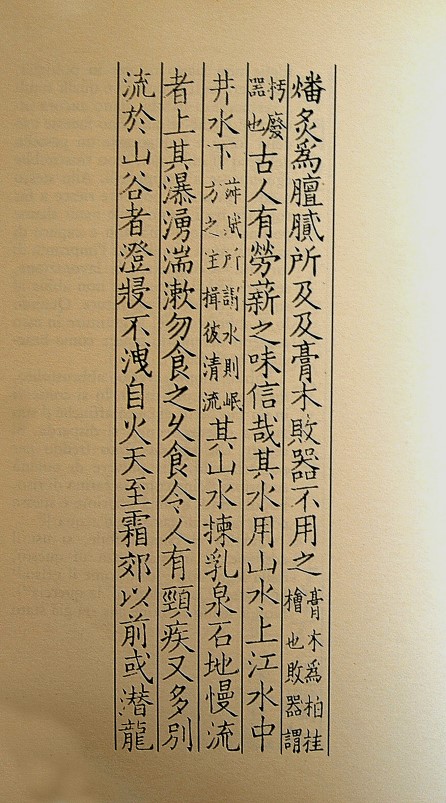 燔炙爲膻膩所及及膏木敗器不用之膏木爲柏桂檜也敗器謂
朽廢器也古人有勞薪之味信哉其水用山水上江水中
井水下荈賦所謂水則岷方之主揖彼清流其山水揀乳泉石地慢流
者上其瀑湧湍漱勿食之久食令人有頸疾又多別
流於山谷者澄浸不洩自火天至霜郊以前或潛龍